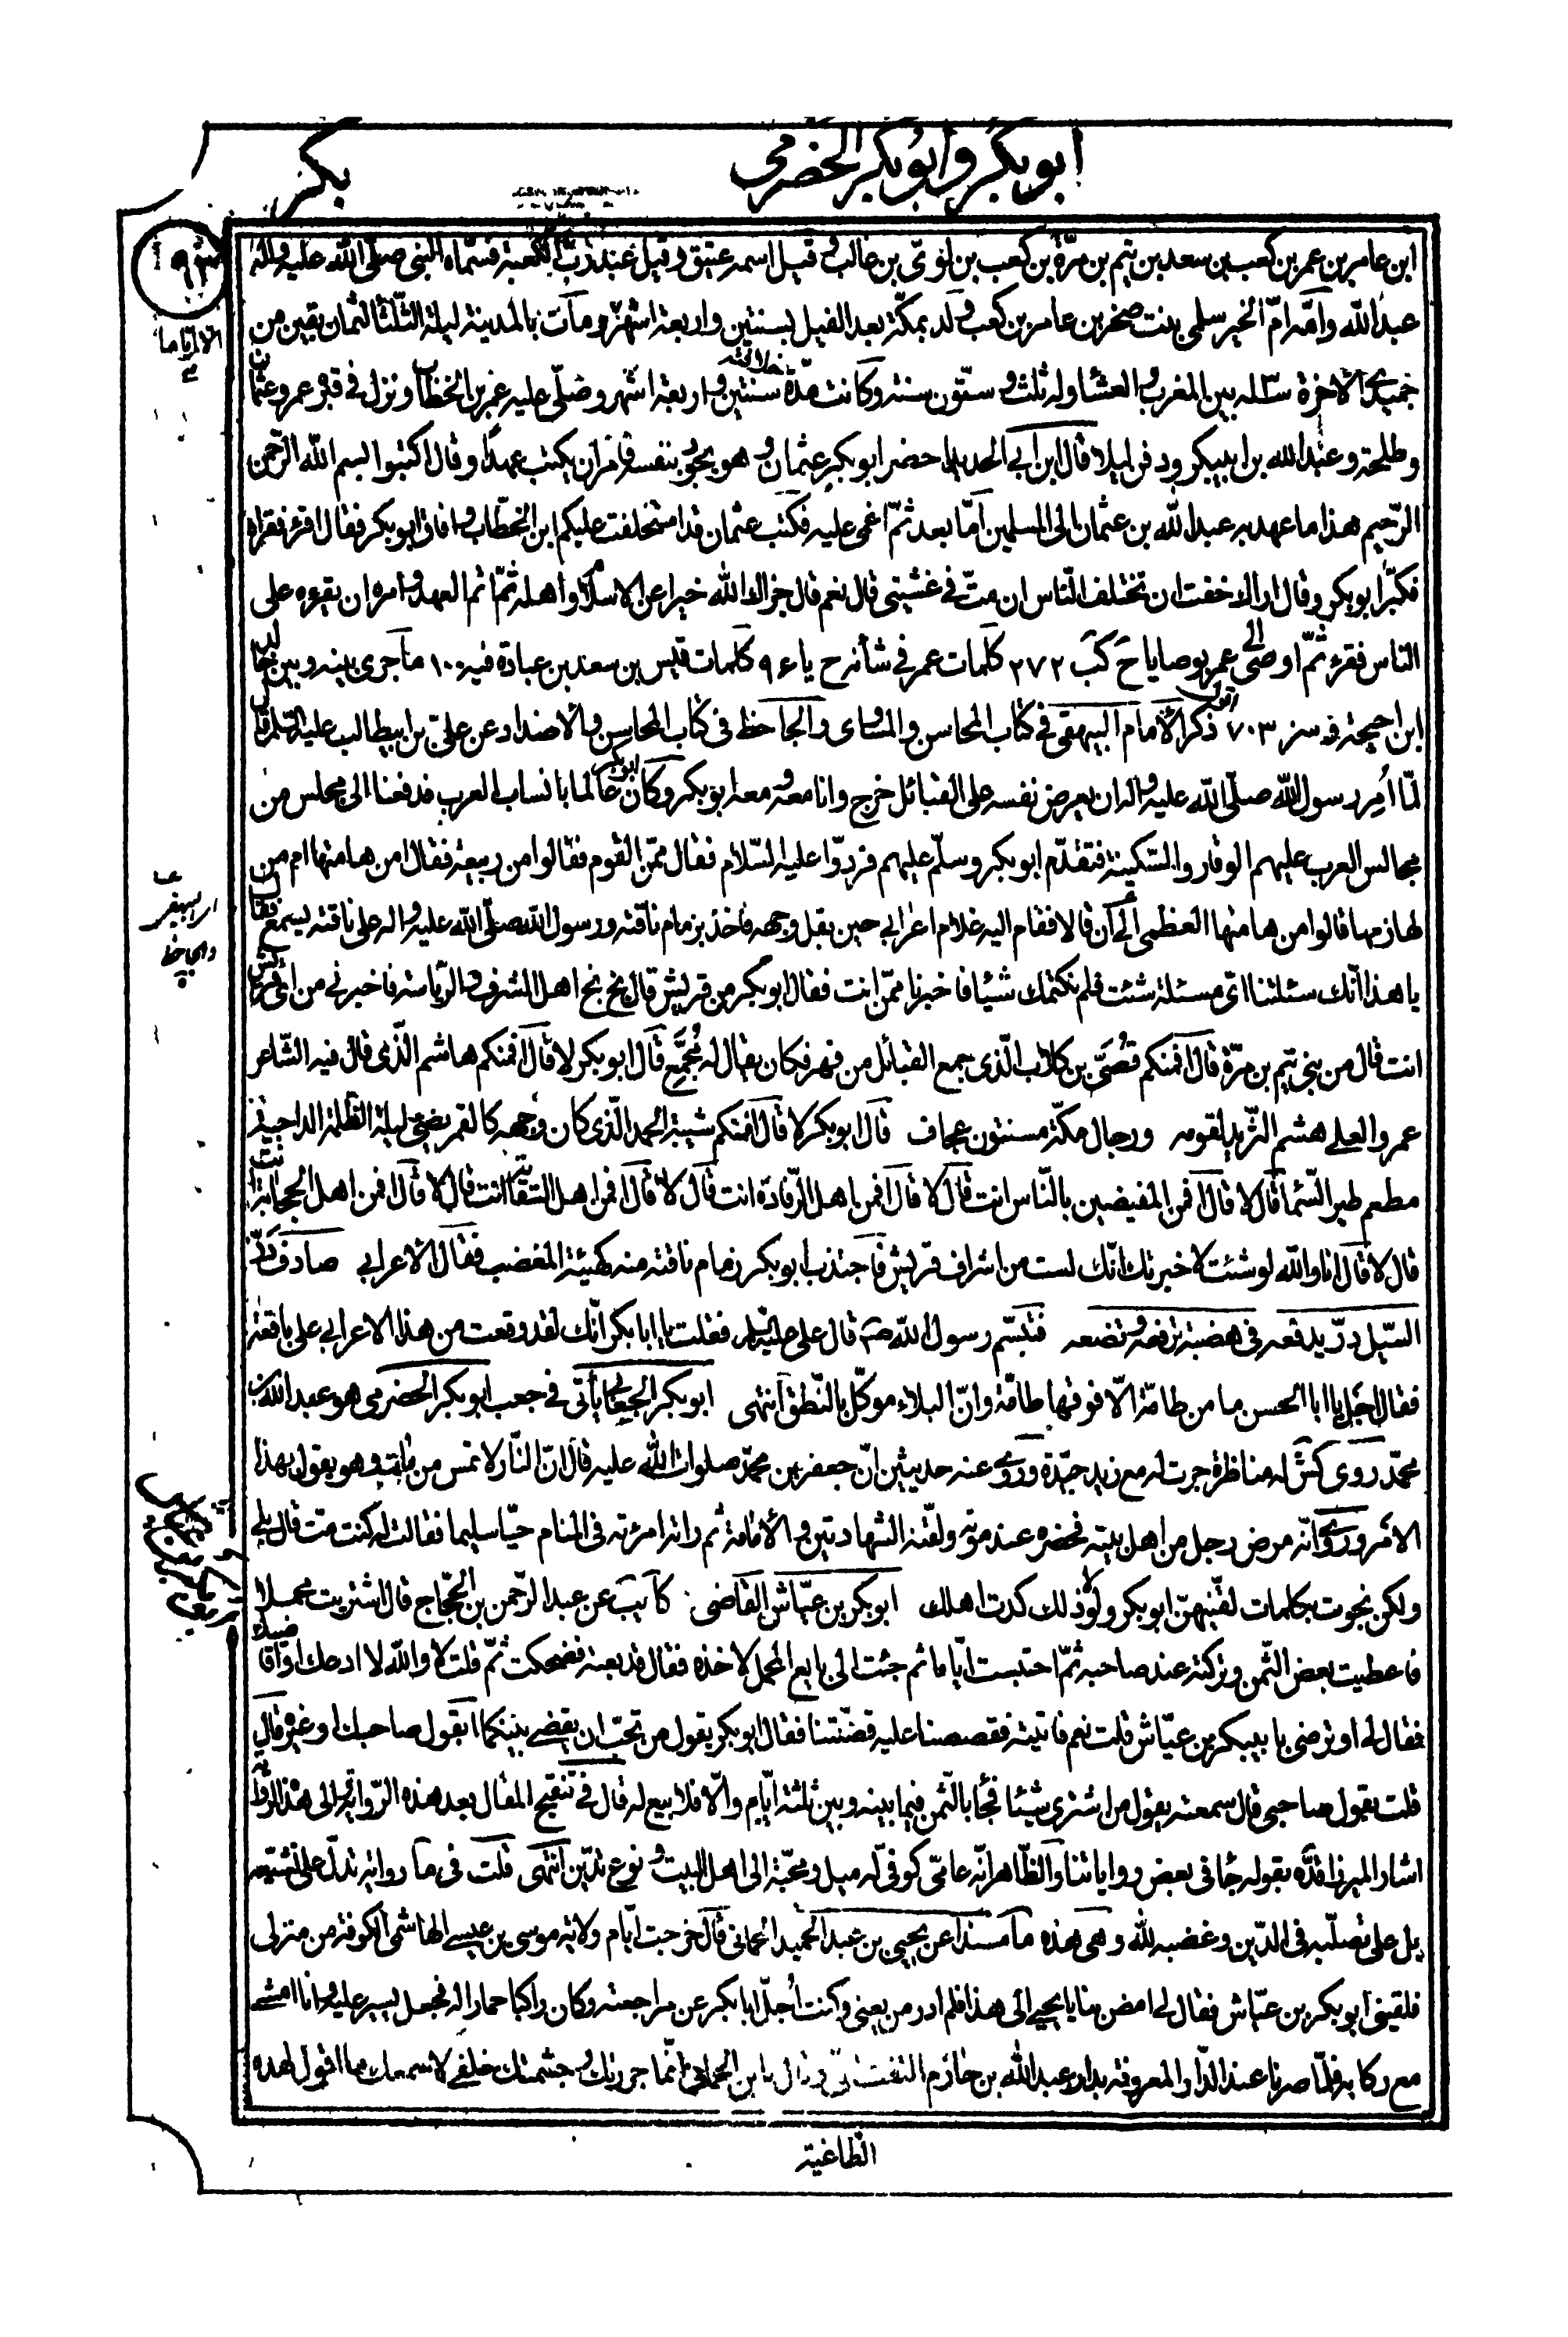 ابو بكر وابو بكر الحضرمي
بكر
ابن عامر بن عمر بن كعب بن سعد بن تيم بن مرّة بن كعب بن لويّ بن غالب و قيل اسمه عتيق وقيل عبد ربّ الكعبة فسمّاه النبي صلى الله عليه واله
عبد الله وامّه امّ الخير سلمى بنت صخر بن عامر بن كعب ولد بمكّة بعد الفيل بسنتين واربعة اشهر ومات بالمدينة ليلة الثلثا لثمان بقين من
جميدى الاخرة سـ١٣ـنه بين المغرب والعشا وله ثلث و ستّون سنة وكانت مدّة خلافته سنتين واربعة اشهر وصلّى عليه عمر بن الخطاب ونزل في قبره عمر وعثمان
وطلحة وعبد الله بن ابيبكر ودفن ليلا قال ابن ابي الحديد احضر ابو بكر عثمان و هو يجود بنفسه فامر ان يكتب عهدا وقال اكتبوا بسم الله الرّحمن
الرّحيم هذا ما عهد به عبد الله بن عثمان الى المسلمين امّا بعد ثمّ اغمى عليه فكتب عثمان قد استخلفت عليكم ابن الخطّاب وافاق ابو بكر فقال اقرء فقراه
فكبّر ابو بكر وقال اراك خفت ان تختلف النّاس ان متّ في غشيتي قال نعم قال جزاك الله خيرا عن الاسلام واهله ثمّ اتم العهد وامره ان يقرءه على
الناس فقرء ثمّ اوصى الى عمر بوصايا ح كب ٢٧٢ كلمات عمر في شأنه ح يا ٩٦ كلمات قيس بن سعد بن عبادة فيه ١٠ ما جرى بينه وبين خالد
ابن احيحة فد سز ٧٠٣ اقول ذكر الامام البيهقى في كتاب المحاسن والمساوى والجاحظ في كتاب المحاسن والاضداد عن عليّ بن ابيطالب عليه السّلم قال
لمّا اُمِر رسول الله صلّى الله عليه واله ان يعرض نفسه على القبائل خرج وانا معه و معه ابو بكر وكان ابو بكر عالما بانساب العرب فدفعنا الى مجلس من
مجالس العرب عليهم الوقار والسّكينة فتقدّم ابو بكر وسلّم عليهم فردّوا عليه السّلام فقال ممّن القوم فقالوا من ربيعة فقال امن هامتها ام من
لهازمها قالوا من هامتها العظمى الى ان قالا فقام اليه غلام اعرابي حين بقل وجهه فاخذ بزمام ناقته ورسول الله صلّى الله عليه واله على ناقته يسمع فقال
يا هذا انّك سئلتنا اىّ مسئلة شئت فلم نكتمك شيئا فاخبرنا ممّن انت فقال ابو بكر من قريش قال بخ بخ اهل الشرف والرّياسة فاخبرني من اى قريش
انت قال من بنى تيم بن مرّة قال افمنكم قُصَىّ بن كلاب الّذى جمع القبائل من فهر فكان يقال له مُجمِّع قال ابو بكر لا قال افمنكم هاشم الّذى قال فيه الشّاعر
عمرو العلى هشم الثّريد لقومه ورجال مكّة مسنتون عجاف قال ابو بكر لا قال افمنكم شيبة الحمد الّذى كان وجهه كالقمر يضيئ ليلة الظّلمة الداجية
مطعم طير السّما قال لا قال افمن المفيضين بالنّاس انت قال لا قال افمن اهل الرّفادة انت قال لا قال افمن اهل السّقاية انت قال لا قال افمن اهل الحجابة انت
قال لا قال انا والله لو شئت لاخبرتك انّك لست من اشراف قريش فاجتذب ابو بكر زمام ناقته منه كهيئة المغضب فقال الاعرابي صادف درّ
السّيل درّ يدفعه في هضبة ترفعه وتضعه فتبسّم رسول الله ص قال على عليه السّلم فقلت يا ابا بكر انّك لقد وقعت من هذا الاعرابي على باقعة
فقال اجل يا ابا الحسن ما من طامّة الّا فوقها طامّة وانّ البلاء موكّل بالنّطق انتهى ابو بكر الجعابي يأتى في جعب ابو بكر الحضرمى هو عبد الله بن
محمّد روى كش له مناظرة جرت له مع زيد جيّدة وروى عنه حديثين انّ جعفر بن محمّد صلوات الله عليه قال انّ النّار لا تمس من مات وهو يقول بهذا
الامر وروى انّه مرض رجل من اهل بيته فحضره عند موته ولقّنه الشهادتين والامامة ثم راته امرئته في المنام حيّا سليما فقالت له كنت متّ قال بلى
ولكن نجوت بكلمات لقّنيهنّ ابو بكر ولولا ذلك كدت اهلك ابو بكر بن عيّاش القاضى كا يب عن عبد الرّحمن بن الحجّاج قال اشتريت محملا
فاعطيت بعض الثّمن وتركته عند صاحبه ثمّ احتبست ايّاما ثم جئت الى بايع المحمل لاخذه فقال قد بعته فضحكت ثمّ قلت لا والله لا ادعك او اقاضيك
فقال لى او ترضى بابيبكر بن عيّاش قلت نعم فاتيته فقصصنا عليه قصّتنا فقال ابو بكر بقول من تحبّ ان يقضى بينكما ابقول صاحبك او غيره قال
قلت بقول صاحبى قال سمعته يقول من اشترى شيئا فجا بالثّمن فيما بينه وبين ثلثة ايّام والّا فلا بيع له قال في تنقيح المقال بعد هذه الرّواية والى هذه الرّواية
اشار الميرزا قدّه بقوله جا في بعض رواياتنا والظّاهر انّه عامّي كوفىّ له ميل ومحبّة الى اهل البيت و نوع تديّن انتهى قلت في ما رواية تدلّ على تشيّعه
بل على تصلّبه في الدّين وغضبه لله وهى هذه ما مسندا عن يحيى بن عبد الحميد الحمانى قال خرجت ايّام ولاية موسى بن عيسى الهاشمى الكوفة من منزلى
فلقينى ابو بكر بن عيّاش فقال لى امض بنا يا يحيى الى هذا فلم ادر من يعنى وكنت اُجلّ ابا بكر عن مراجعته وكان راكبا حمارا له فجعل يسير عليه وانا امشى
مع ركابه فلمّا صرنا عند الدّار المعروفة بدار عبد الله بن حازم التفت الىّ وقال يا بن الحمانى انّما جررتك وجشمتك خلفى لاسمعك ما اقول لهذه
الطاغية